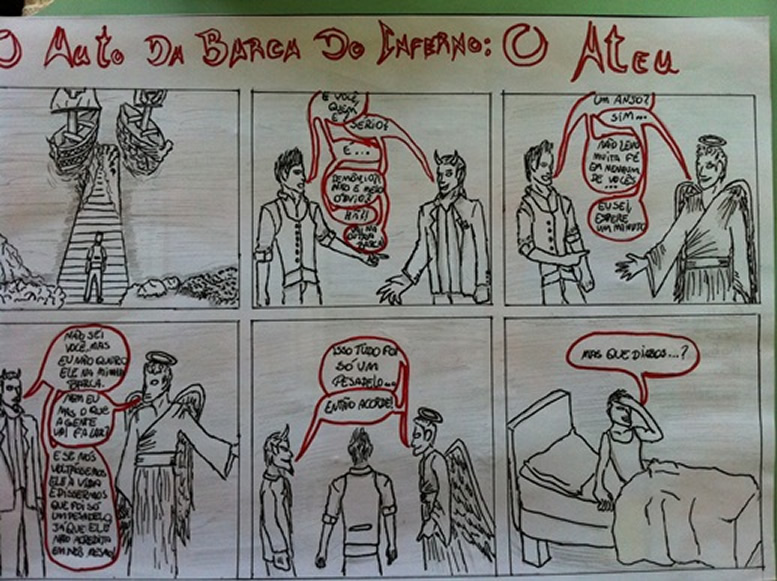 O AUTO DA BARCA DO INFERNO: O ATEU
E VOCÊ,
QUEM
É
SÉRIO?
É...
DEMÔNIO?!
NÃO É MEIO
ÓBVIO?
HÃ?!
VAI NA
OUTRA
BARCA
UM ANJO?
SIM...
NÃO LEVO
MUITA FÉ
EM NENHUM
DE VOCÊS
...
EU SEI,
ESPERE
UM MINUTO
NÃO SEI
VOCÊ, MAS
EU NÃO QUERO
ELE NA MINHA
BARCA.
NEM EU
MAS O QUE
A GENTE
VAI FALAR?
E SE NÓS
VOLTÁSSEMOS
ELE À VIDA
E DISSERMOS
QUE FOI SÓ
UM PESADELO
JÁ QUE ELE
NÃO ACREDITA
EM NÓS MESMO!
ISSO TUDO FOI
SÓ UM
PESADELO...
ENTÃO ACORDE!
MAS QUE DIABOS...?